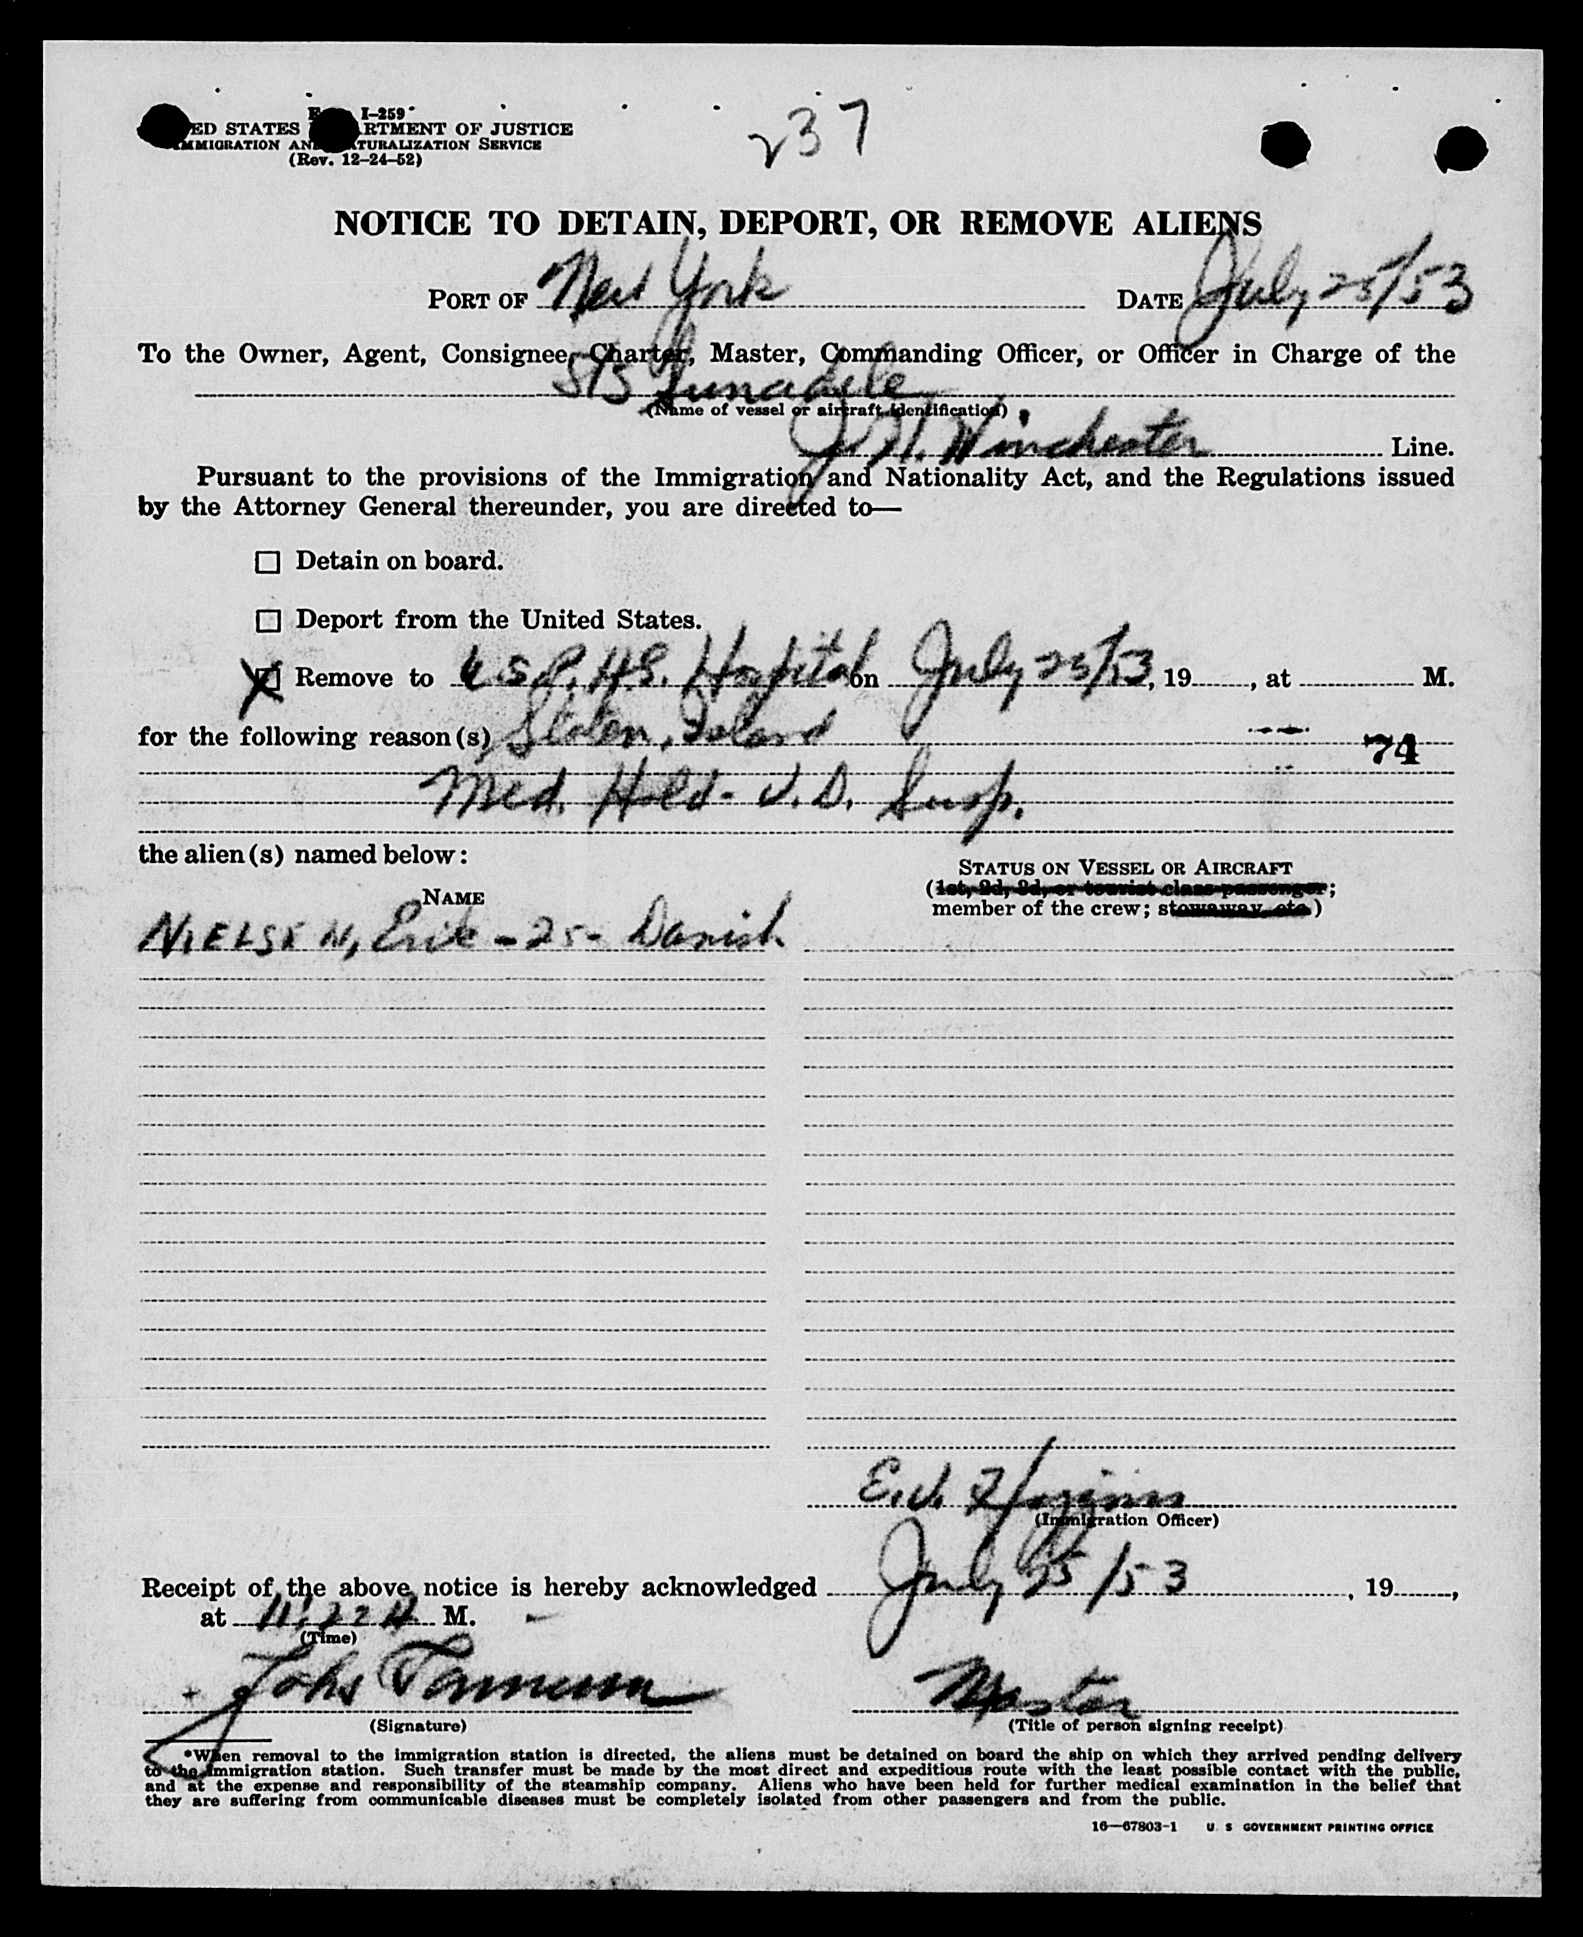 I-259
ED STATES RTMENT OF JUSTICE
MMIGRATION AN TURALIZATION SERVICE
(Rev. 12-24-52)
237
NOTICE TO DETAIN, DEPORT, OR REMOVE ALIENS
PORT OF New York DATE July 25/53
To the Owner, Agent, Consignee, Charter, Master, Commanding Officer, or Officer in Charge of the
S/S
(Name of vessel or aircraft identification)
J. H. Winchester Line.
Pursuant to the provisions of the Immigration and Nationality Act, and the Regulations issued
by the Attorney General thereunder, you are directed to—
☐ Detain on board.
☐ Deport from the United States.
☒ Remove to U.S.P.H.S. Hospital on July 25/53, 19, at M.
for the following reason(s) Staten Island
74
Med. Hold - V.D. Susp.
the alien(s) named below:
STATUS ON VESSEL OR AIRCRAFT
(1st, 2d, 3d, or tourist class passenger;
member of the crew; stowaway, etc.)
NAME
NIELSEN, Erik - 25 - Danish
E.J.
(Immigration Officer)
Receipt of the above notice is hereby acknowledged July 25/53, 19,
at 11:22 A M.
(Time)
Master
(Signature)
(Title of person signing receipt)
*When removal to the immigration station is directed, the aliens must be detained on board the ship on which they arrived pending delivery
to the immigration station. Such transfer must be made by the most direct and expeditious route with the least possible contact with the public,
and at the expense and responsibility of the steamship company. Aliens who have been held for further medical examination in the belief that
they are suffering from communicable diseases must be completely isolated from other passengers and from the public.
16—67803-1 U S GOVERNMENT PRINTING OFFICE